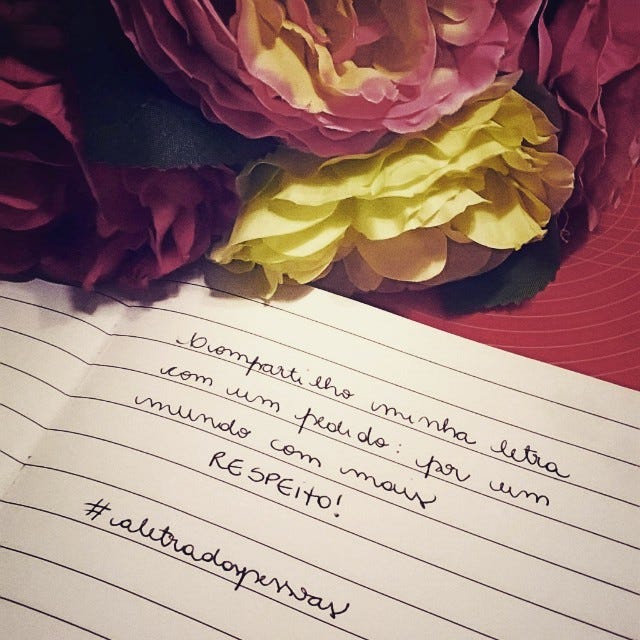 Compartilho minha letra
com um pedido: por um
mundo com mais
RESPEITO!
#aletradaspessoas